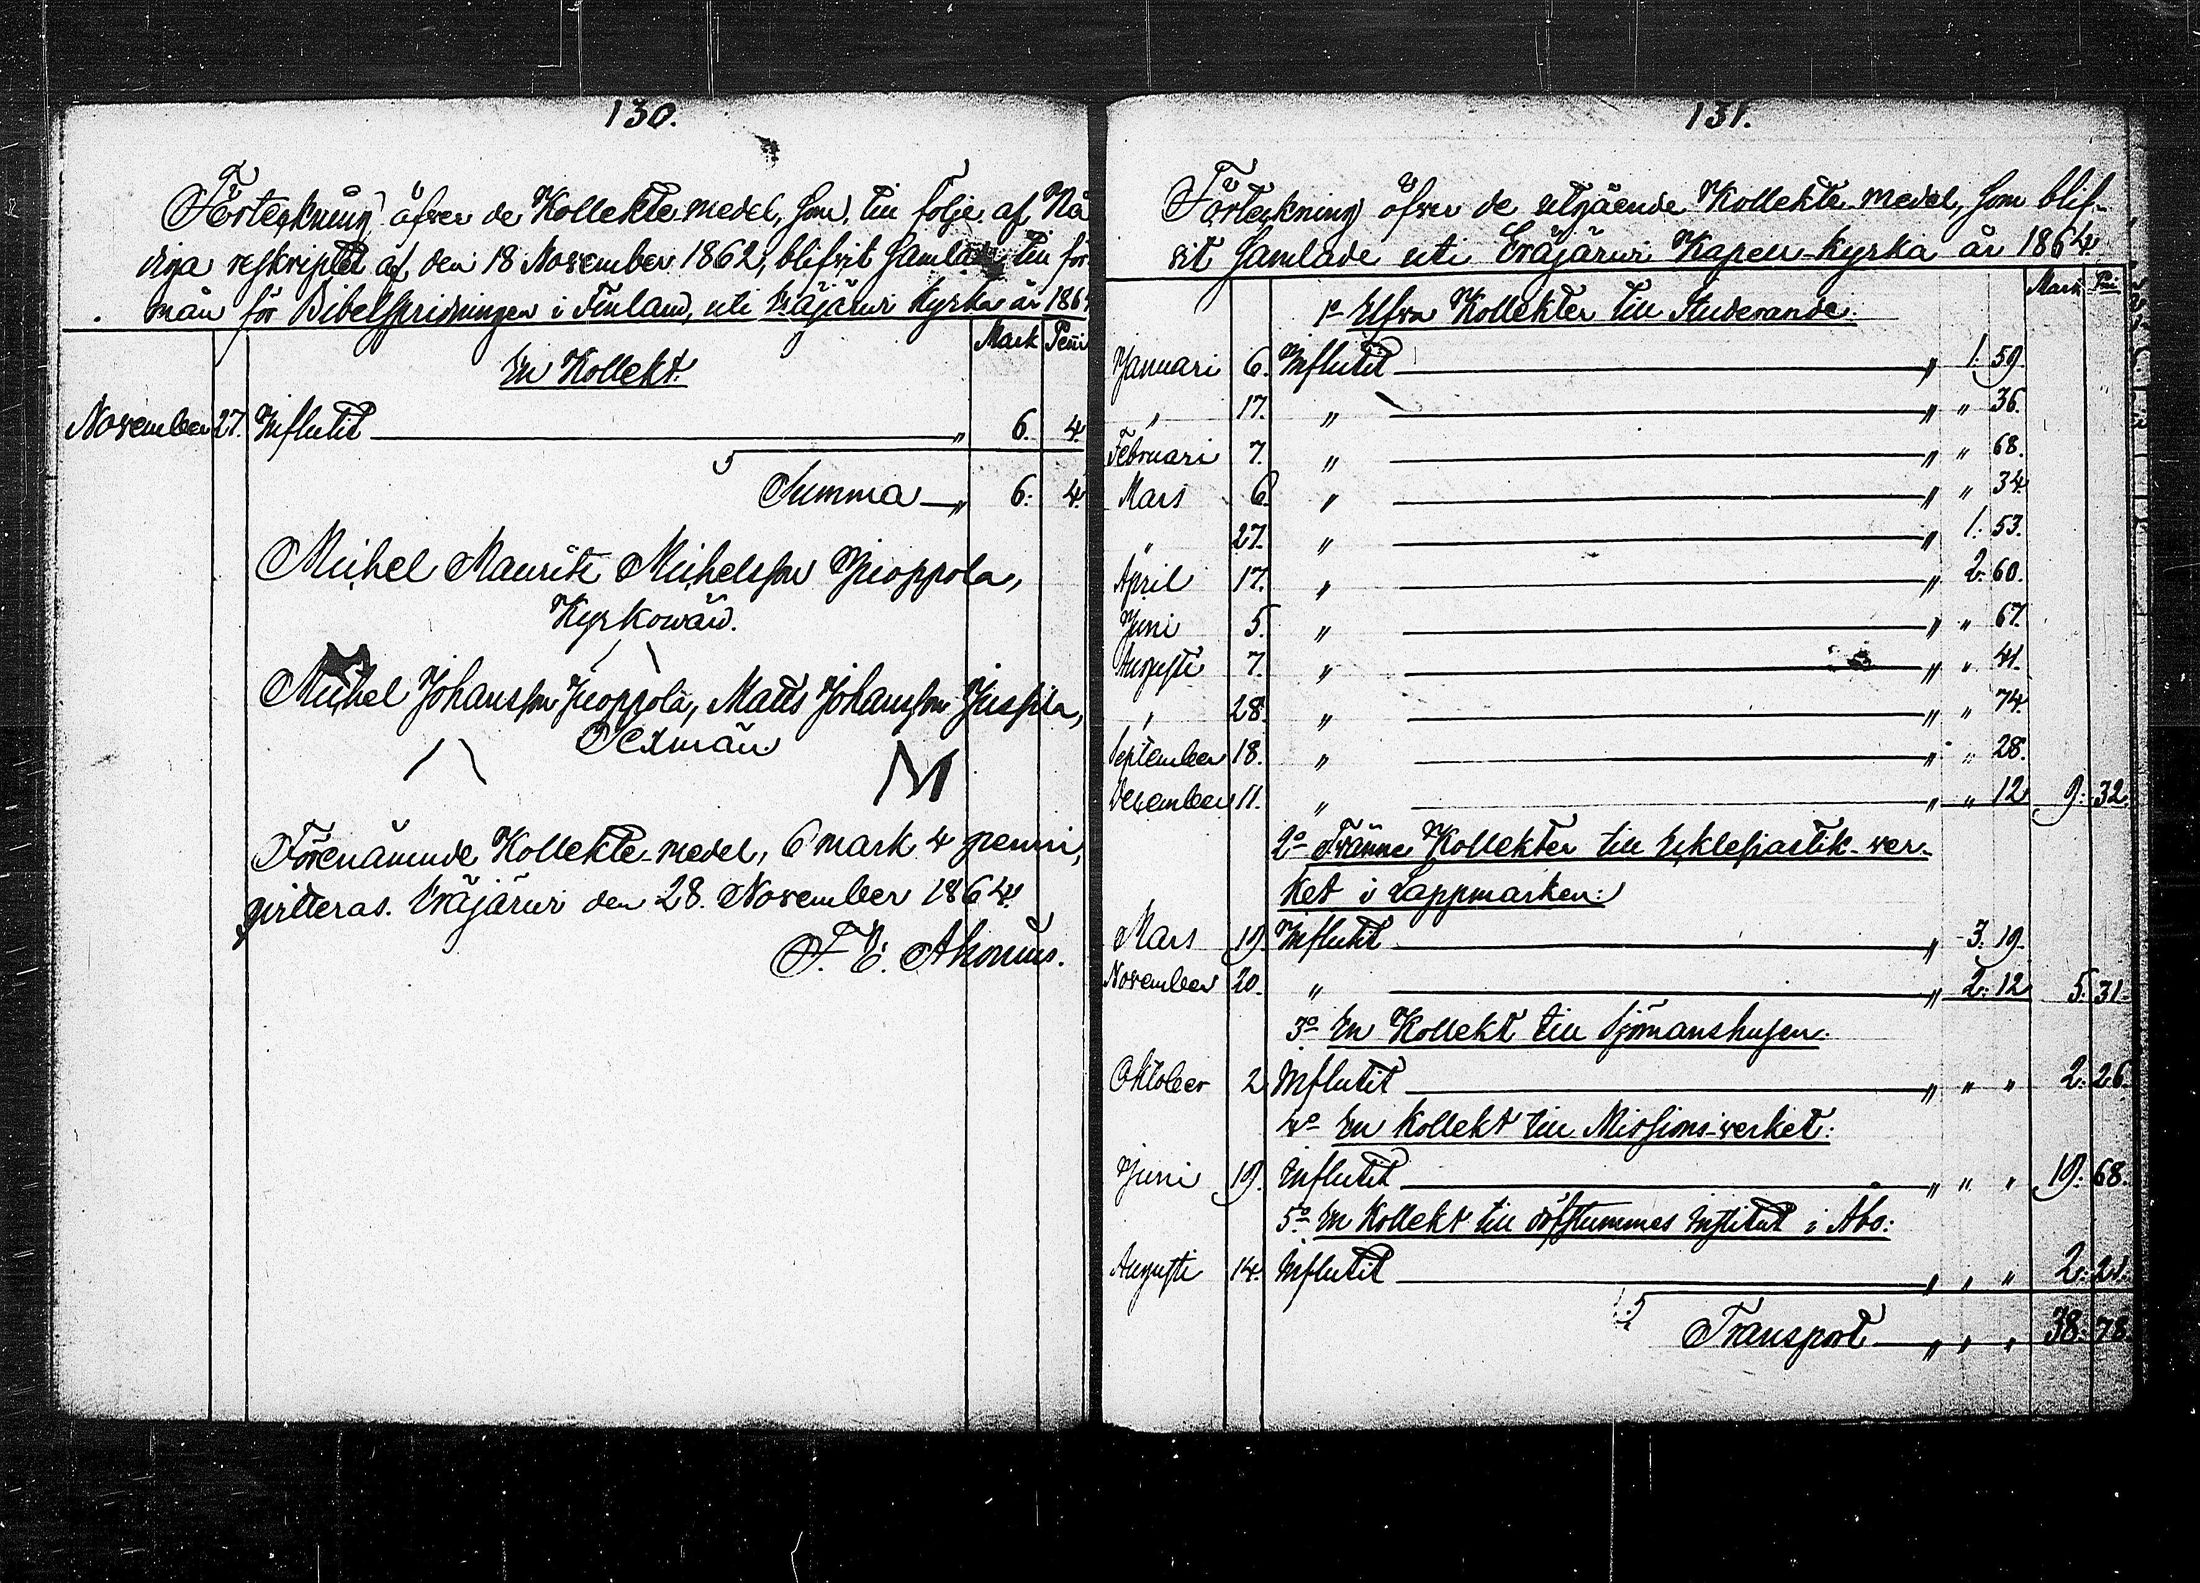 130.
Förteckning öfver de Kollekte-medel, som, till följe af Nå
diga reskriptet af den 18 November 1862, blifvit samlade till för
mån för Bibelspridningen i Finland, uti Eräjärvi Kyrka år 1864
Mark Penni
En Kollekt.
November 27. Influtit " 6. 4.
Summa " 6: 4.
Michel Maurits Michelsson Jeoppola,
Kyrkowärd.
Michel Johansson Jeoppola, Matts Johansson Jussila,
Sexmän
Förenämnde Kollekte-medel, 6 mark 4 penni,
qvitteras. Eräjärvi den 28. November 1864.
F. E. Ahonius.
131.
Förteckning öfver de utgående Kollekte-medel, som blif-
vit samlade uti Eräjärvi Kapell-kyrka år 1864.
Mark Pni
1o Elfva Kollekter till Studerande.
Januari 6. Influtit " 1. 59.
" 17. " " " 36.
Februari 7. " " " 68.
Mars 6. " " " 34.
" 27. " " 1. 53.
April 17. " " 2. 60.
Juni 5. " " " 67.
Augusti 7. " " " 41.
" 28. " " " 74.
September 18. " " " 28.
December 11. " " " 12 9: 32.
2o Tvänne Kollekter till Ecklesiastik-ver-
ket i Lappmarken:
Mars 19. Influtit " 3. 19.
November 20. " " 2: 12 5: 31.
3o En Kollekt till Sjömanshusen:
Oktober 2. Influtit " " " 2: 26.
4o En Kollekt till Missions-verket:
Juni 19. Influtit " " " 19: 68.
5o En Kollekt till döfstummas institut i Åbo:
Augusti 14. Influtit " " " 2: 21.
Transport " " " 38: 78.